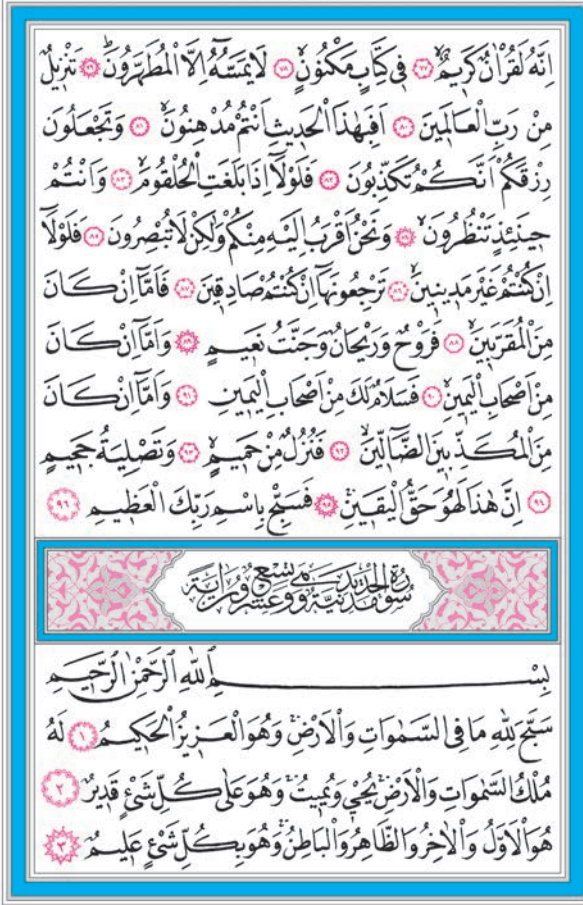 اِنَّهُ لَقُرْاٰنٌ كَرِيمٌۙ ﴿٧٧﴾ فِي كِتَابٍ مَكْنُونٍۙ ﴿٧٨﴾ لَا يَمَسُّهُٓ اِلَّا الْمُطَهَّرُونَۜ ﴿٧٩﴾ تَنْزِيلٌ
مِنْ رَبِّ الْعَالَمِينَ ﴿٨٠﴾ اَفَبِهٰذَا الْحَدِيثِ اَنْتُمْ مُدْهِنُونَۙ ﴿٨١﴾ وَتَجْعَلُونَ
رِزْقَكُمْ اَنَّكُمْ تُكَذِّبُونَ ﴿٨٢﴾ فَلَوْلَٓا اِذَا بَلَغَتِ الْحُلْقُومَۙ ﴿٨٣﴾ وَاَنْتُمْ
حِينَئِذٍ تَنْظُرُونَۙ ﴿٨٤﴾ وَنَحْنُ اَقْرَبُ اِلَيْهِ مِنْكُمْ وَلٰكِنْ لَا تُبْصِرُونَ ﴿٨٥﴾ فَلَوْلَٓا
اِنْ كُنْتُمْ غَيْرَ مَدِينِينَۙ ﴿٨٦﴾ تَرْجِعُونَهَٓا اِنْ كُنْتُمْ صَادِقِينَ ﴿٨٧﴾ فَاَمَّٓا اِنْ كَانَ
مِنَ الْمُقَرَّبِينَۙ ﴿٨٨﴾ فَرَوْحٌ وَرَيْحَانٌ وَجَنَّتُ نَعِيمٍ ﴿٨٩﴾ وَاَمَّٓا اِنْ كَانَ
مِنْ اَصْحَابِ الْيَمِينِۙ ﴿٩٠﴾ فَسَلَامٌ لَكَ مِنْ اَصْحَابِ الْيَمِينِ ﴿٩١﴾ وَاَمَّٓا اِنْ كَانَ
مِنَ الْمُكَذِّبِينَ الضَّٓالِّينَۙ ﴿٩٢﴾ فَنُزُلٌ مِنْ حَمِيمٍۙ ﴿٩٣﴾ وَتَصْلِيَةُ جَحِيمٍ
﴿٩٤﴾ اِنَّ هٰذَا لَهُوَ حَقُّ الْيَقِينِۚ ﴿٩٥﴾ فَسَبِّحْ بِاسْمِ رَبِّكَ الْعَظِيمِ ﴿٩٦﴾
سُورَةُ الْحَدِيدِ مَدَنِيَّةٌ وَهِيَ تِسْعٌ وَعِشْرُونَ اٰيَةً
بِسْمِ اللّٰهِ الرَّحْمٰنِ الرَّحِيمِ
سَبَّحَ لِلّٰهِ مَا فِي السَّمٰوَاتِ وَالْاَرْضِۚ وَهُوَ الْعَزِيزُ الْحَكِيمُ ﴿١﴾ لَهُ
مُلْكُ السَّمٰوَاتِ وَالْاَرْضِۚ يُحْيِ وَيُمِيتُۚ وَهُوَ عَلٰى كُلِّ شَيْءٍ قَدِيرٌ ﴿٢﴾
هُوَ الْاَوَّلُ وَالْاٰخِرُ وَالظَّاهِرُ وَالْبَاطِنُۚ وَهُوَ بِكُلِّ شَيْءٍ عَلِيمٌ ﴿٣﴾